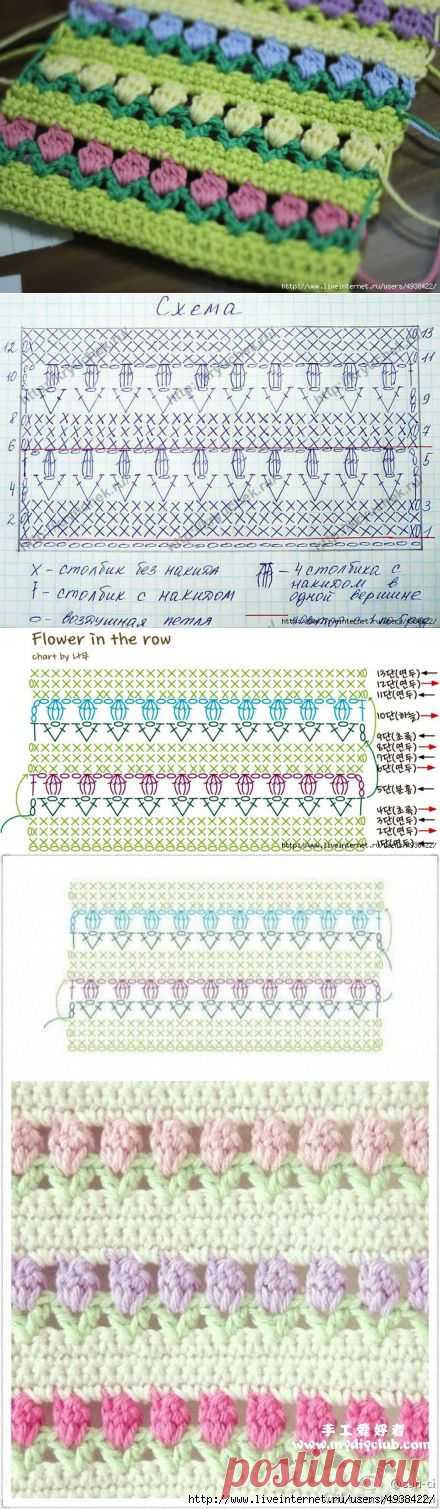 http://www.liveinternet.ru/users/4938422/
Схема
12
13
10
11
9
8
7
6
5
4
3
2
1
х - столбик без накида
- столбик с накидом
о - воздушная петля
- 4 столбика с
накидом в
одной вершине
Flower in the row
chart by 나무
13단(연두)
12단(연두)
11단(연두)
10단(하늘)
9단(초록)
8단(연두)
7단(연두)
6단(연두)
5단(분홍)
4단(초록)
3단(연두)
2단(연두)
http://www.liveinternet.ru/users/4938422/
手工爱好者
www.mydiyclub.com
postila.ru
http://www.liveinternet.ru/users/4938422/